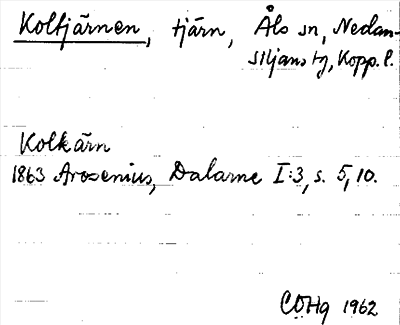 Koltjärnen, tjärn, Åls sn, Nedan-
siljans tg, Kopp. l.
Kolkärn
1863 Arosenius, Dalarne I:3, s. 5, 10.
COHg 1962